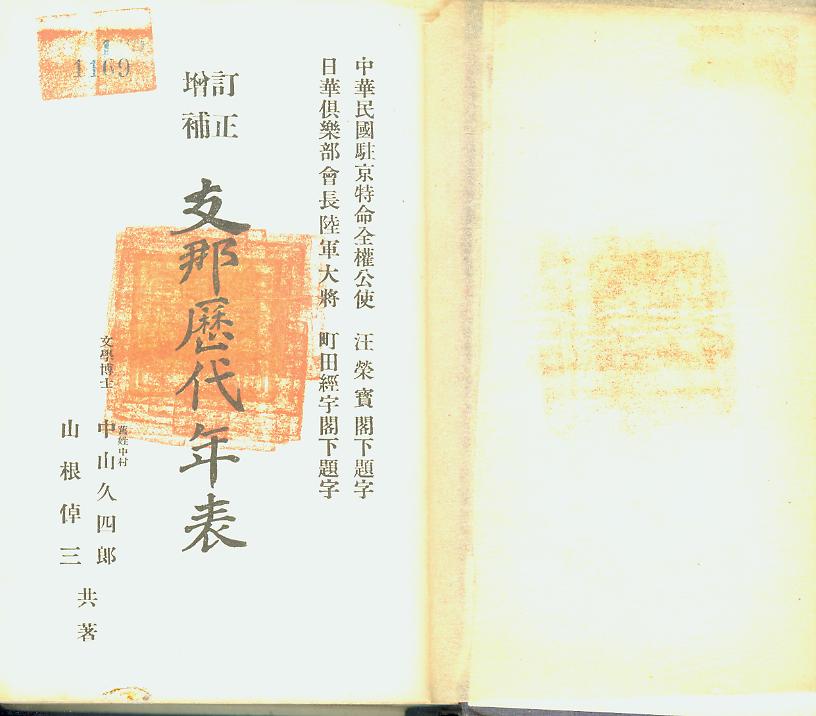 中華民國駐京特命全權公使 汪榮寶閣下題字
日華俱樂部會長陸軍大將 町田經宇閣下題字
訂正
增補
支那歷代年表
文學博士
舊姓中村
中山久四郎
山根倬三
共著
1169